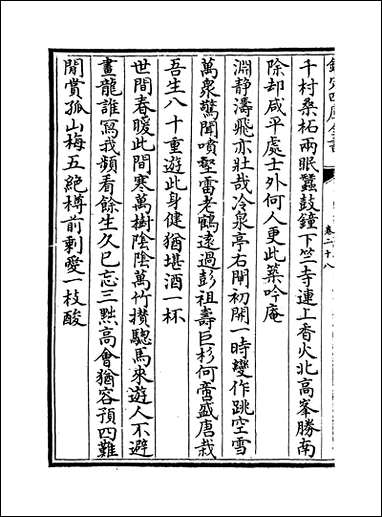 欽定四庫全書
卷二十八
千村桑柘兩眠蠶鼓鐘下竺三寺連上香火北高峯勝南
除却咸平處士外何人更此築吟庵
淵静濤飛亦壯哉冷泉亭右閘初開一時變作跳空雪
萬衆驚聞噴壑雷老鶴遠過彭祖壽巨杉何啻盛唐栽
吾生八十重遊此身健猶堪酒一杯
世間春暖此間寒萬樹陰陰萬竹攅驄馬來遊人不避
畫龍誰寫我頻看餘生久已忘三點高會猶容預四難
閒賞孤山梅五絶樽前剰愛一枝酸